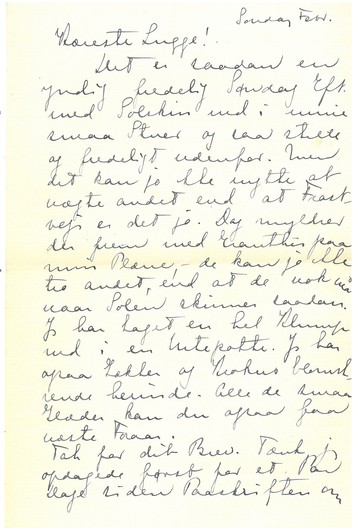 Søndag Febr.
Kæreste Lugge!
Det er saadan en
yndig fredelig Søndag Eft.
med Solskin ind i mine
smaa Stuer og saa stille
og fredeligt udenfor. Men
det kan jo ikke nytte at
vægte andet end at Frost-
vejr er det jo. Dog myldrer
der frem med Eranthis paa
min Plæne, - de kan jo ikke
tro andet, end at de nok maa
naar Solen skinner saadan.
Jeg har taget en hel Klump
ind i en Urtepotte. Jeg har
ogsaa Løkker og Krokus blomst-
rende herinde. Alle de smaa
Glæder kan du ogsaa faa
næste Foraar.
Tak for dit Brev. Tænk, jeg
opdagede først for et Par
Dage siden Paaskriften om